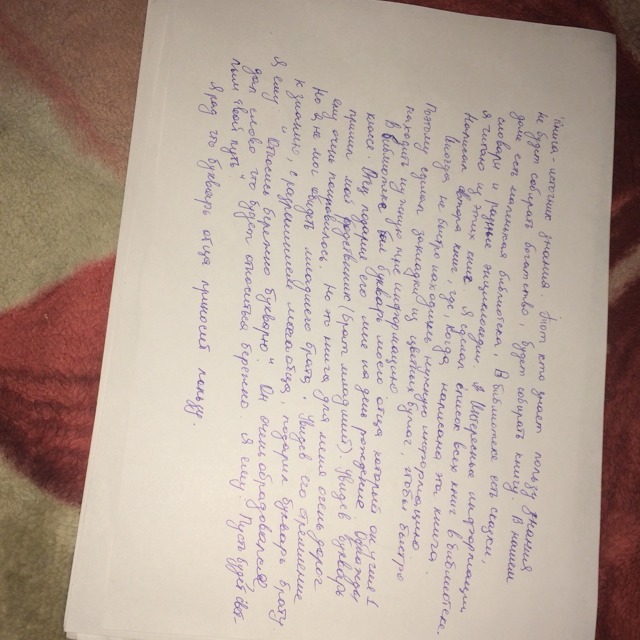 "Книга - источник знания. Тот кто знает пользу знания
не будет собирать богатство, будет собирать книгу. В нашем
доме есть маленькая библиотека. В библиотеке есть сказки,
словари и разные энциклопедии. Интересные информации
я читаю из этих книг. Я сделал список всех книг в библиотеке.
Написал автора книг, где, когда написана эта книга.
Иногда не быстро находились нужную информацию.
Поэтому сделал закладки из цветных бумаг, чтобы быстро
находить нужную мне информацию.
В библиотеке был букварь моего отца который он учил в 1
классе. Отец подарил его мне на день рождение. Однажды
пришел мой родственник (брат младший). Увидев букварь
ему очень понравилось. Но эта книга для меня очень дорог
Но я не мог обидеть младшего брата. Увидев его стремление
к знанию, с разрешением моего отца, подарил букварь брату.
Я ему: "Относись бережно букварю". Он очень обрадовался,
дал слово что будет относиться бережно. Я ему: "Пусть будет свет-
лым твой путь".
Я рад что букварь отца приносит пользу.